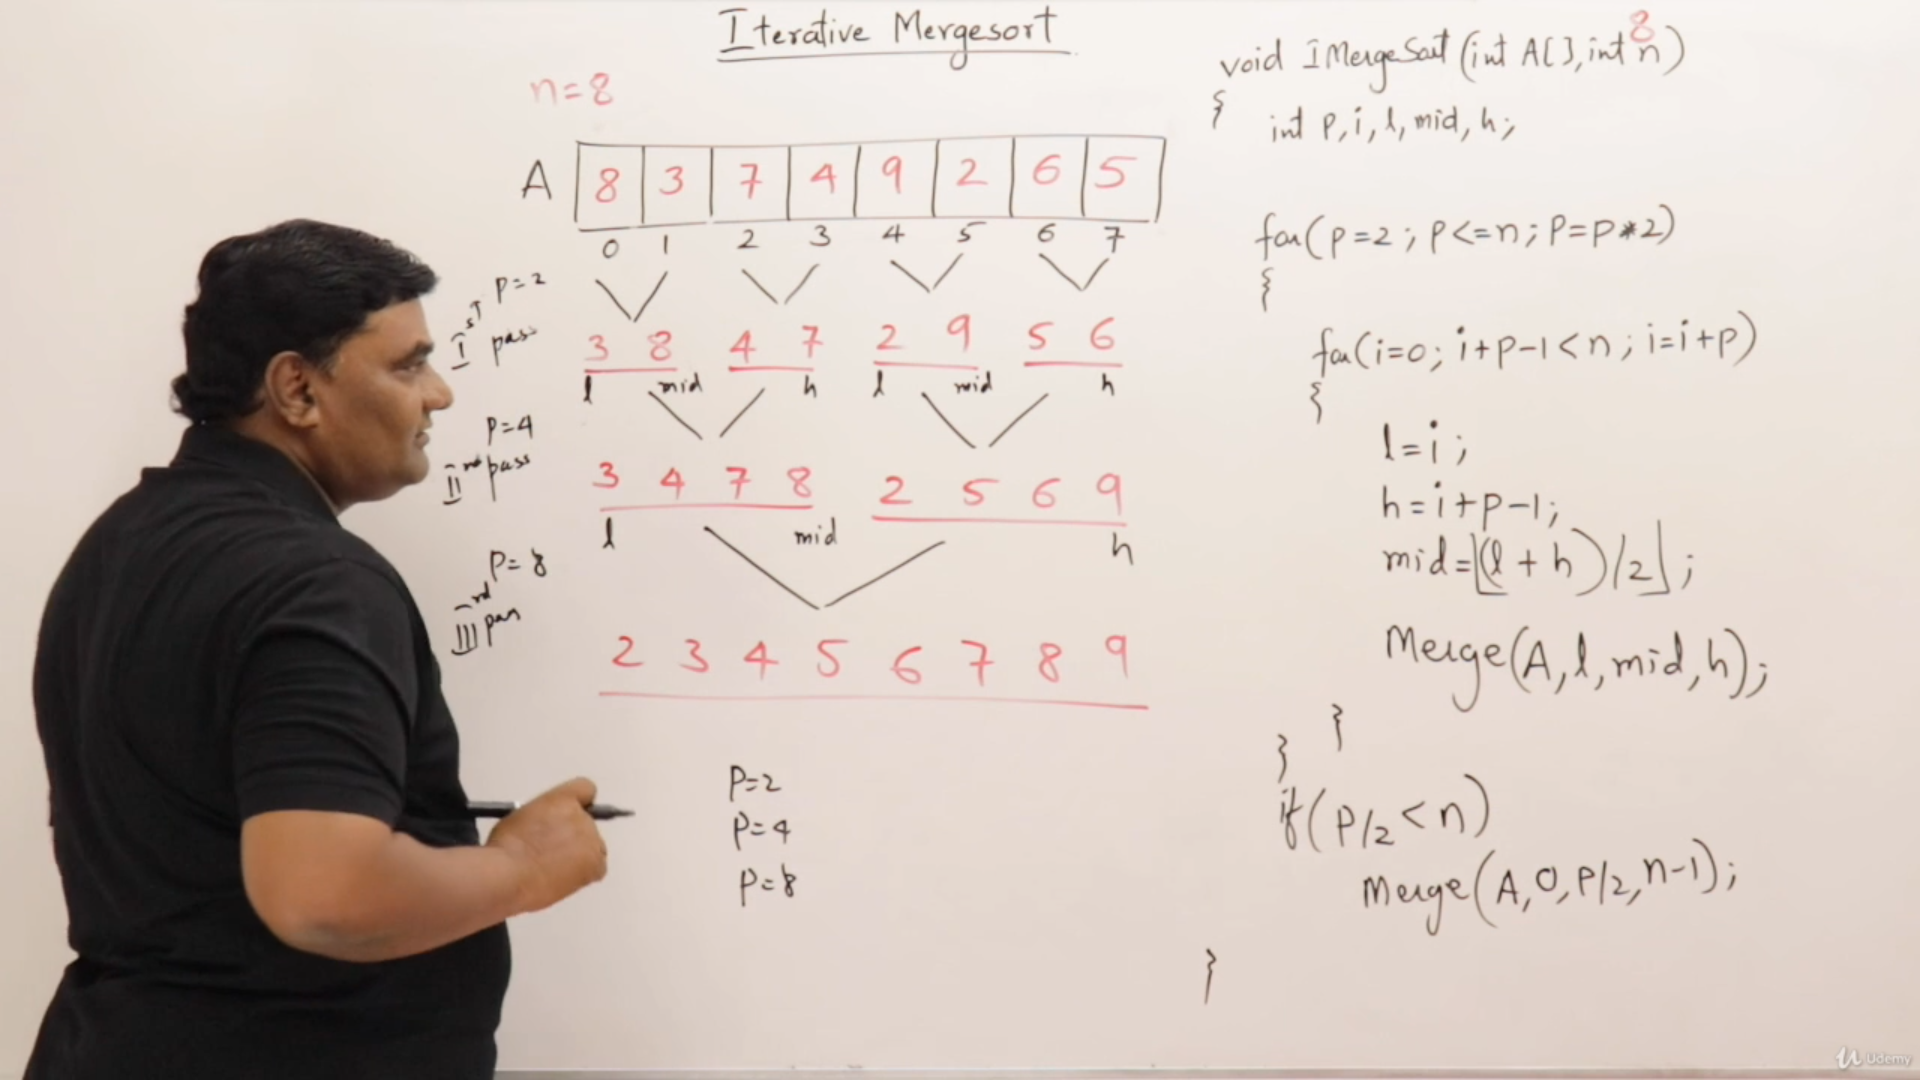 Iterative Mergesort
n=8
A 8 3 7 4 9 2 6 5
0 1 2 3 4 5 6 7
P=2
Ist pass
3 8 4 7 2 9 5 6
l mid h l mid h
P=4
IInd pass
3 4 7 8 2 5 6 9
l mid h
P=8
IIIrd pass
2 3 4 5 6 7 8 9
P=2
P=4
P=8
8
void IMergeSort(int A[],int n)
{
int P,i,l,mid,h;
for(P=2; P<=n; P=P*2)
{
for(i=0; i+P-1<n; i=i+P)
{
l=i;
h=i+P-1;
mid=⌊(l+h)/2⌋;
Merge(A,l,mid,h);
}
}
if(P/2<n)
Merge(A,0,P/2,n-1);
}
Udemy